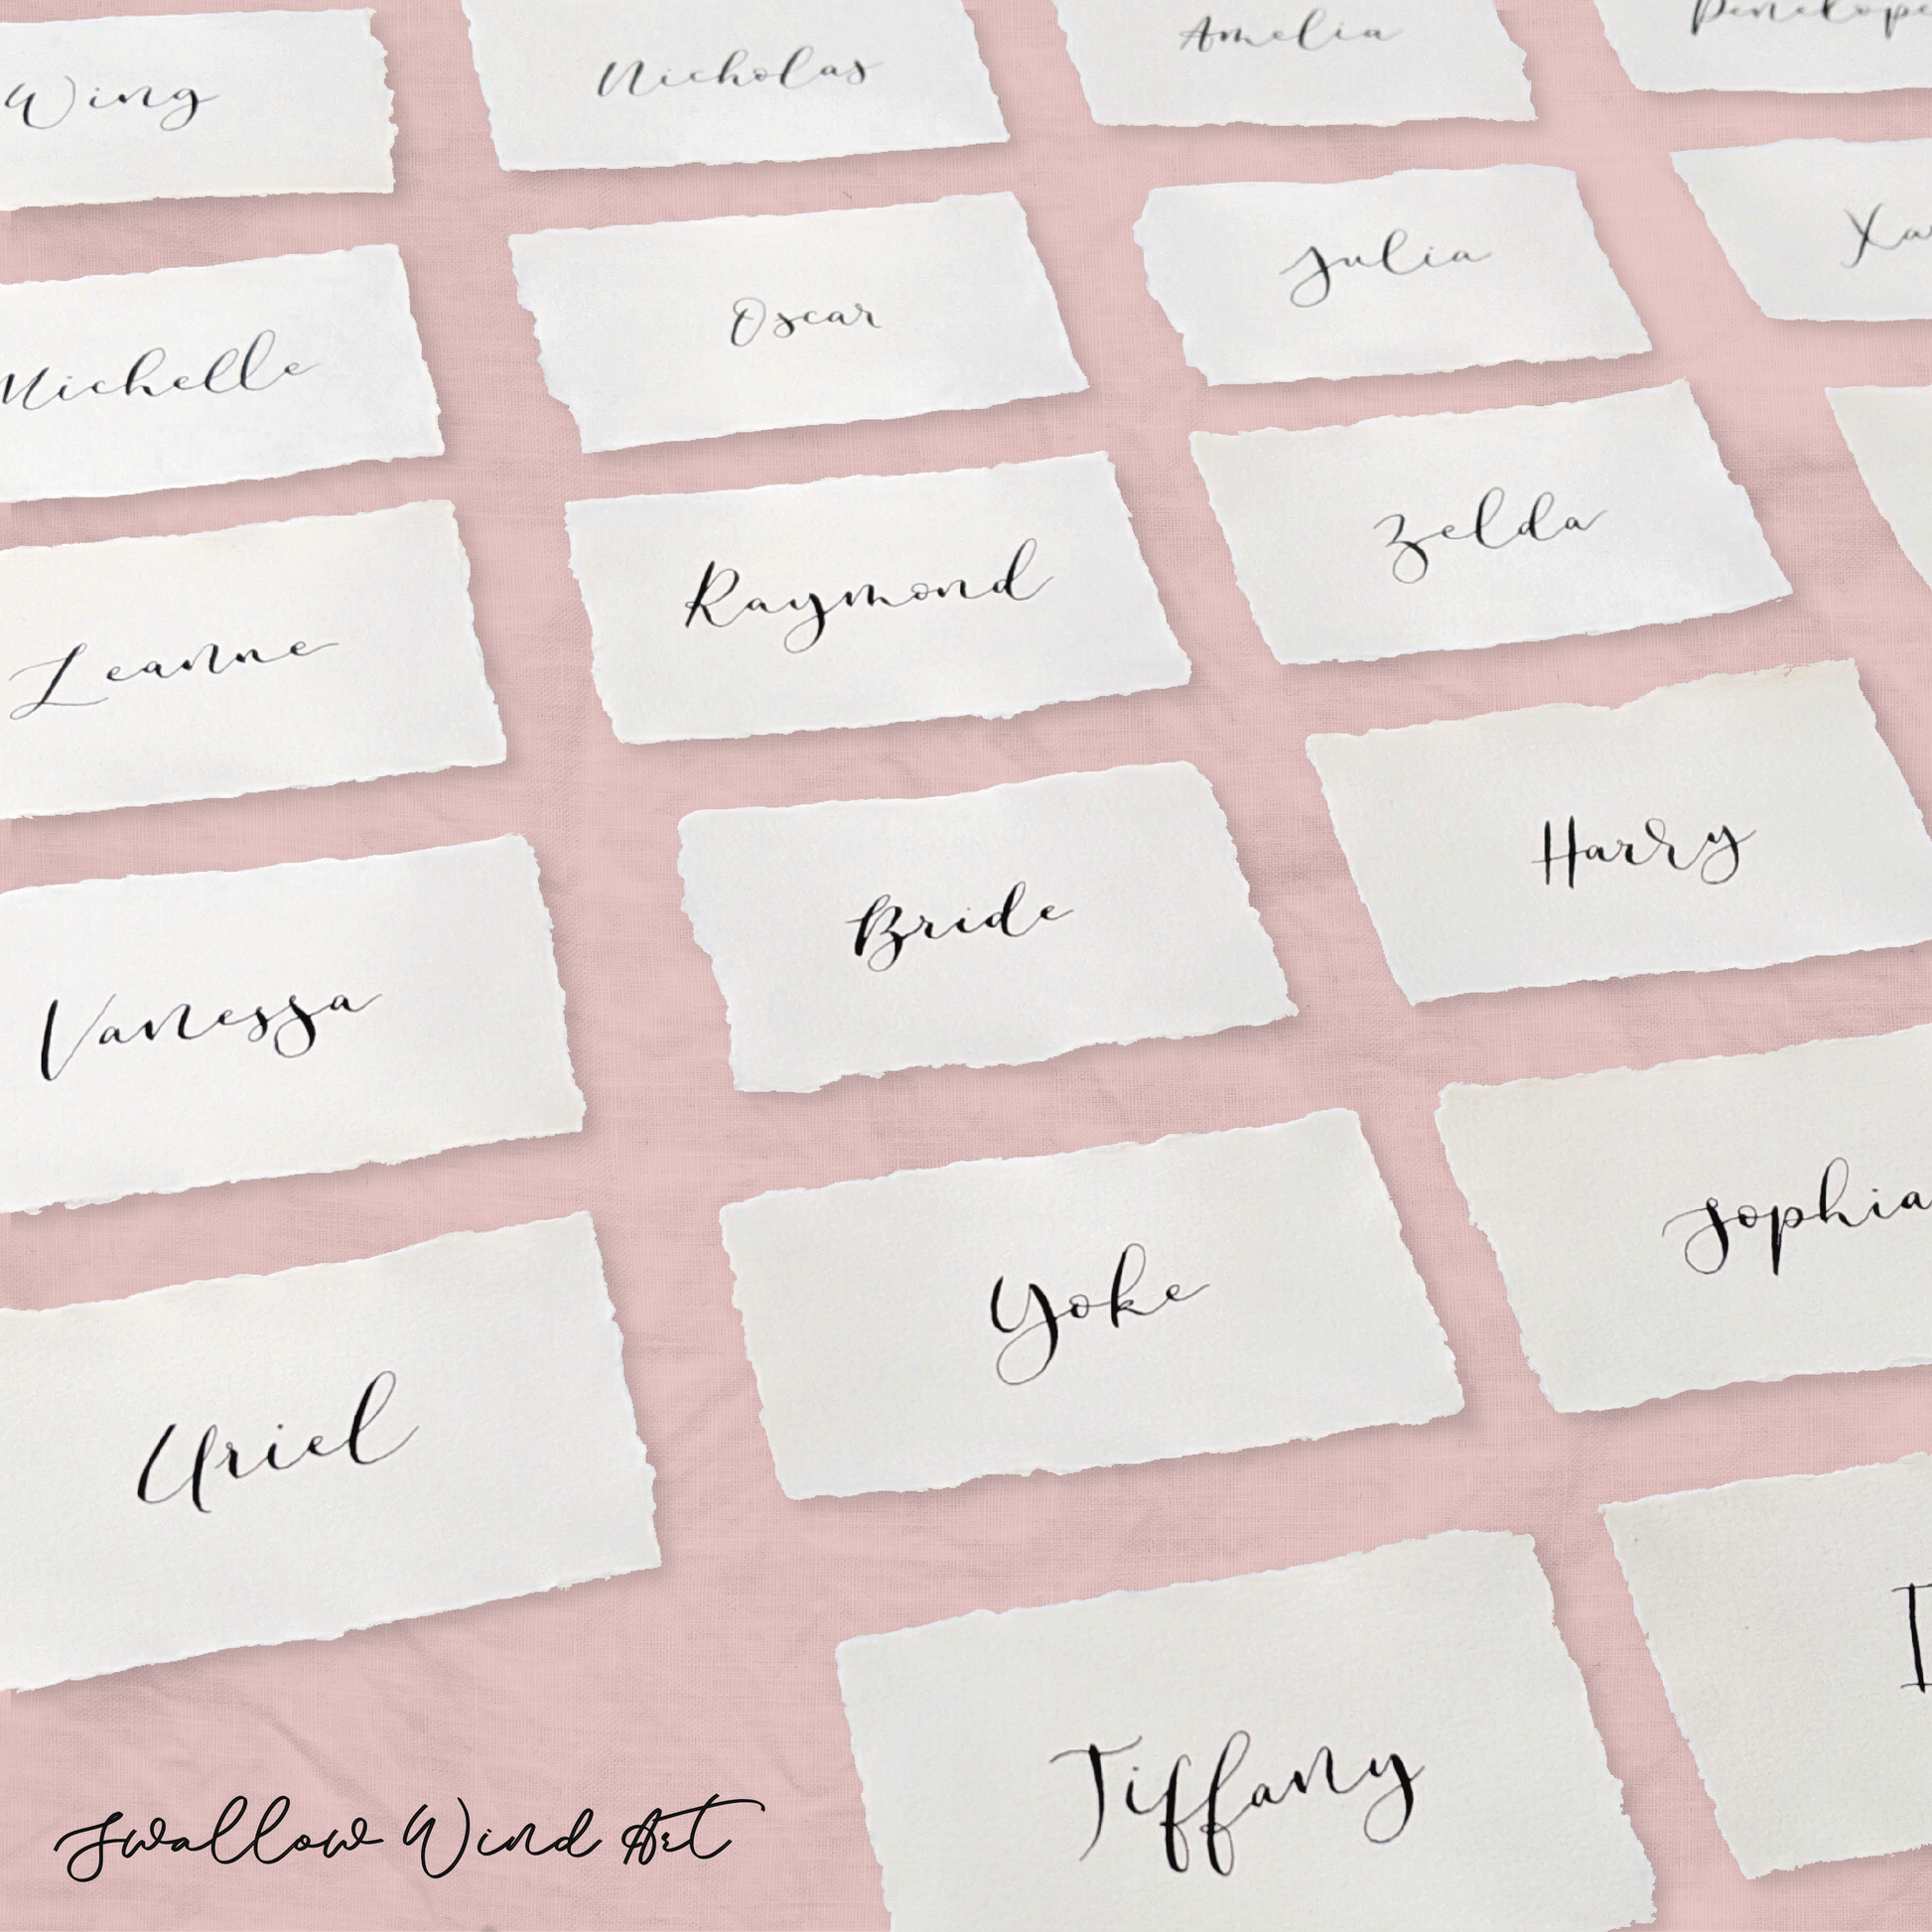 Wing
Nicholas
Amelia
Penelope
Michelle
Oscar
Julia
Xa
Leanne
Raymond
Zelda
Vanessa
Bride
Harry
Uriel
Yoke
Sophia
Tiffany
Swallow Wind Art